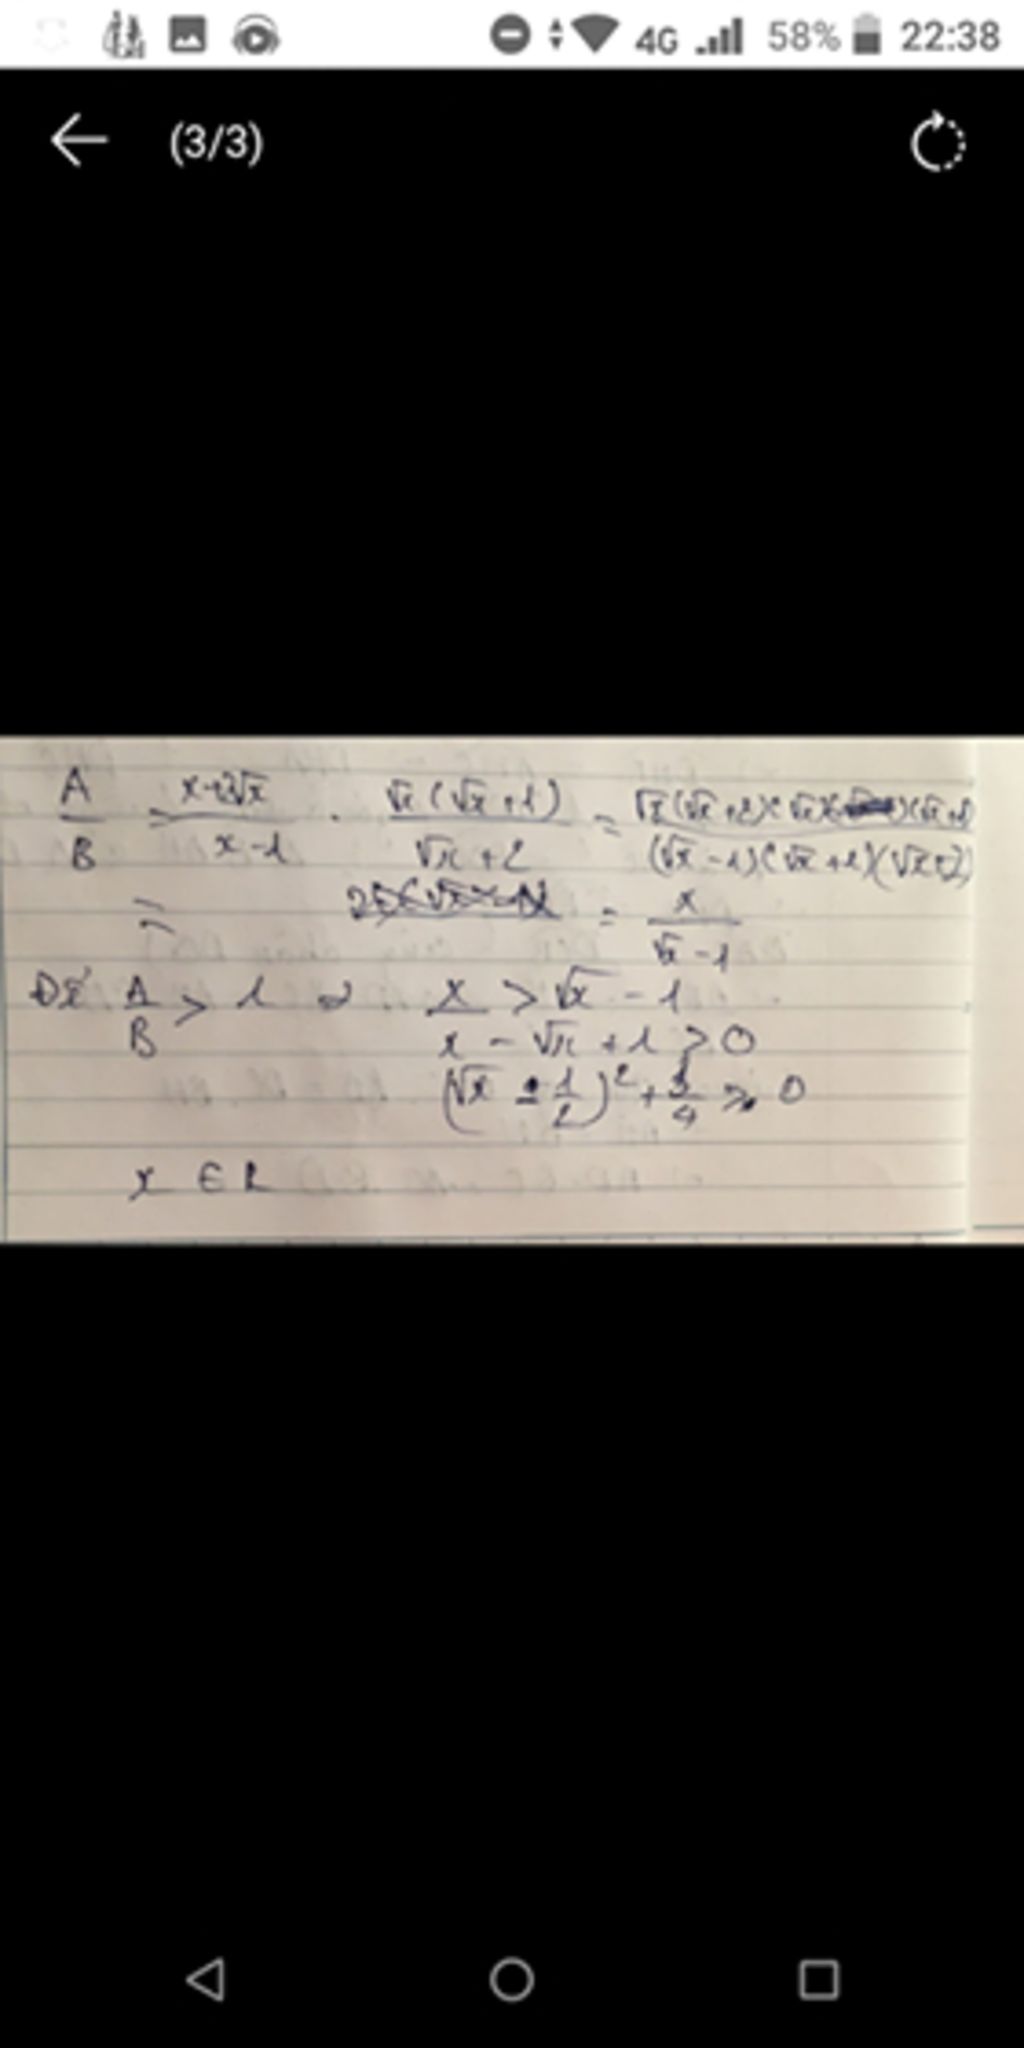 4G 58% 22:38
(3/3)
A/B = x+2√x / x-1 . √x(√x+1) / √x+2 = √x(√x+2)(√x)(√x+1) / (√x-1)(√x+1)(√x+2)
= = x / √x-1
Để A/B > 1 x > √x - 1
x - √x + 1 > 0
(√x - 1/2)² + 3/4 > 0
x ∈ R